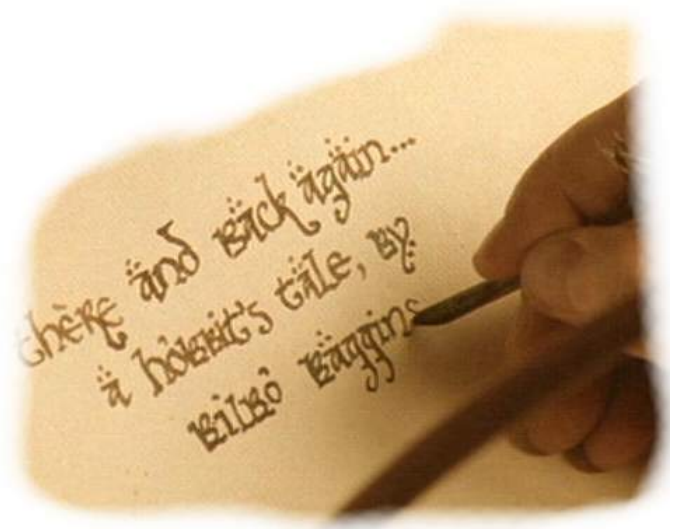 there and back again...
a hobbit's tale, by
Bilbo Baggins